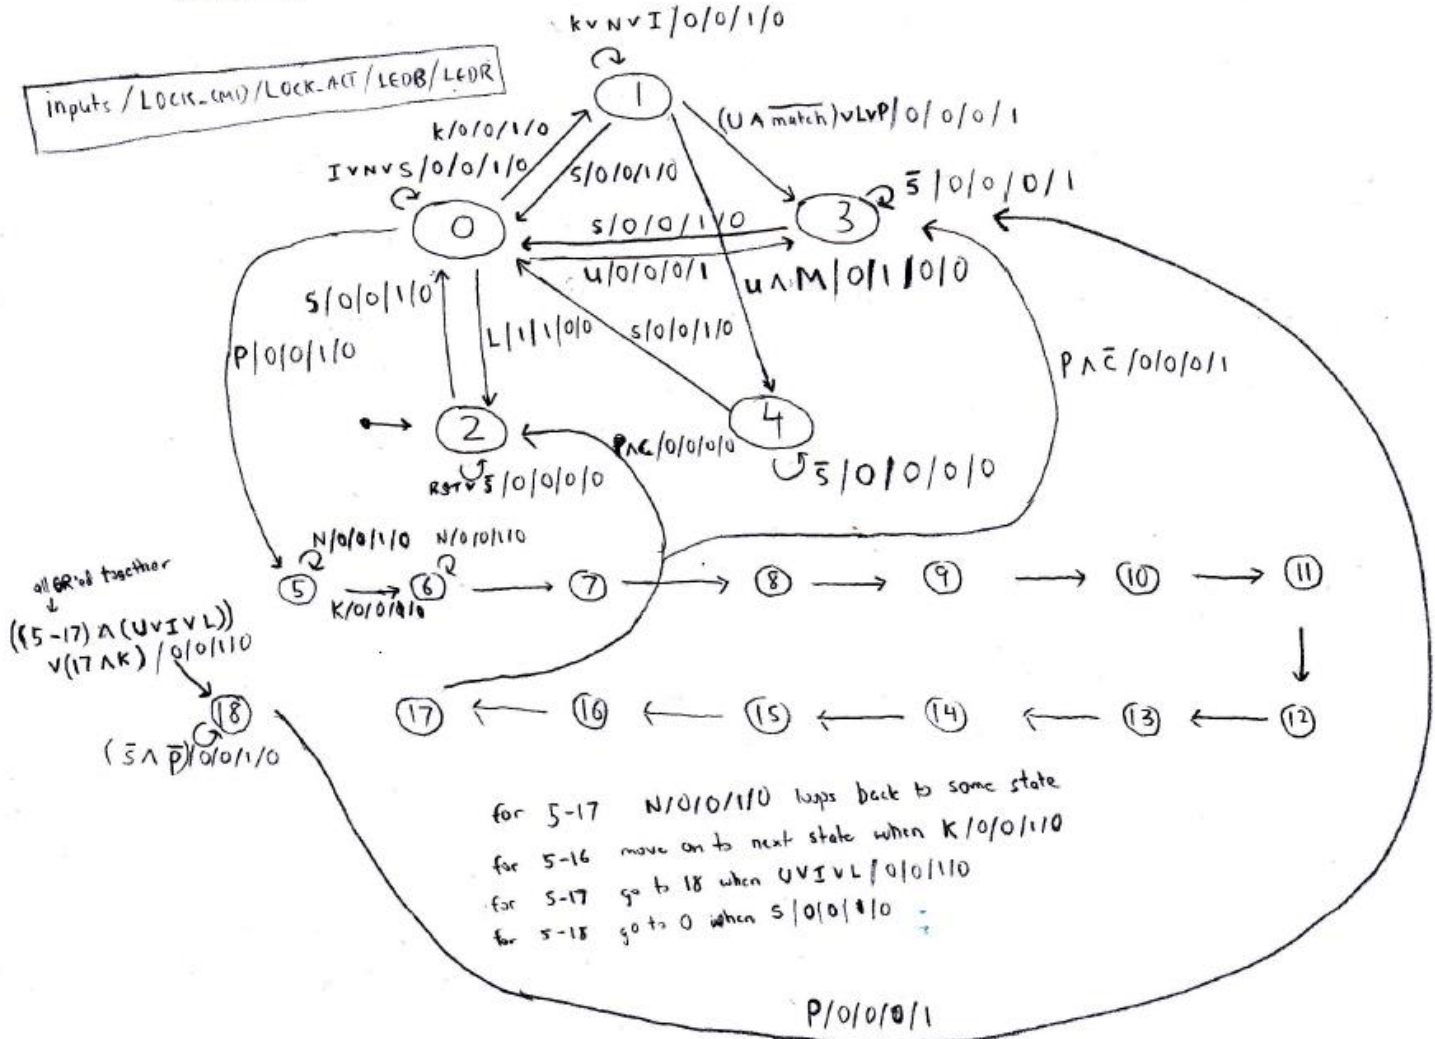 K∨N∨I/0/0/1/0
inputs/LOCK_CMD/LOCK_ACT/LEDB/LEDR
1
(U∧m̅a̅t̅c̅h̅)∨L∨P/0/0/0/1
K/0/0/1/0
I∨N∨S/0/0/1/0
S/0/0/1/0
S̅/0/0/0/1
0
S/0/0/1/0
3
U/0/0/0/1
U∧M/0/1/0/0
S/0/0/1/0
L/1/1/0/0
S/0/0/1/0
P/0/0/1/0
P∧C̅/0/0/0/1
2
4
P∧C/0/0/0/0
S̅/0/0/0/0
RST∨S̅/0/0/0/0
N/0/0/1/0
N/0/0/1/0
all OR'ed together
5
6
7
8
9
10
11
K/0/0/1/0
((5-17)∧(U∨I∨L))
∨(17∧K)/0/0/1/0
18
17
16
15
14
13
12
(S̅∧P̅)/0/0/1/0
for 5-17 N/0/0/1/0 loops back to same state
for 5-16 move on to next state when K/0/0/1/0
for 5-17 go to 18 when U∨I∨L/0/0/1/0
for 5-18 go to 0 when S/0/0/1/0
P/0/0/0/1